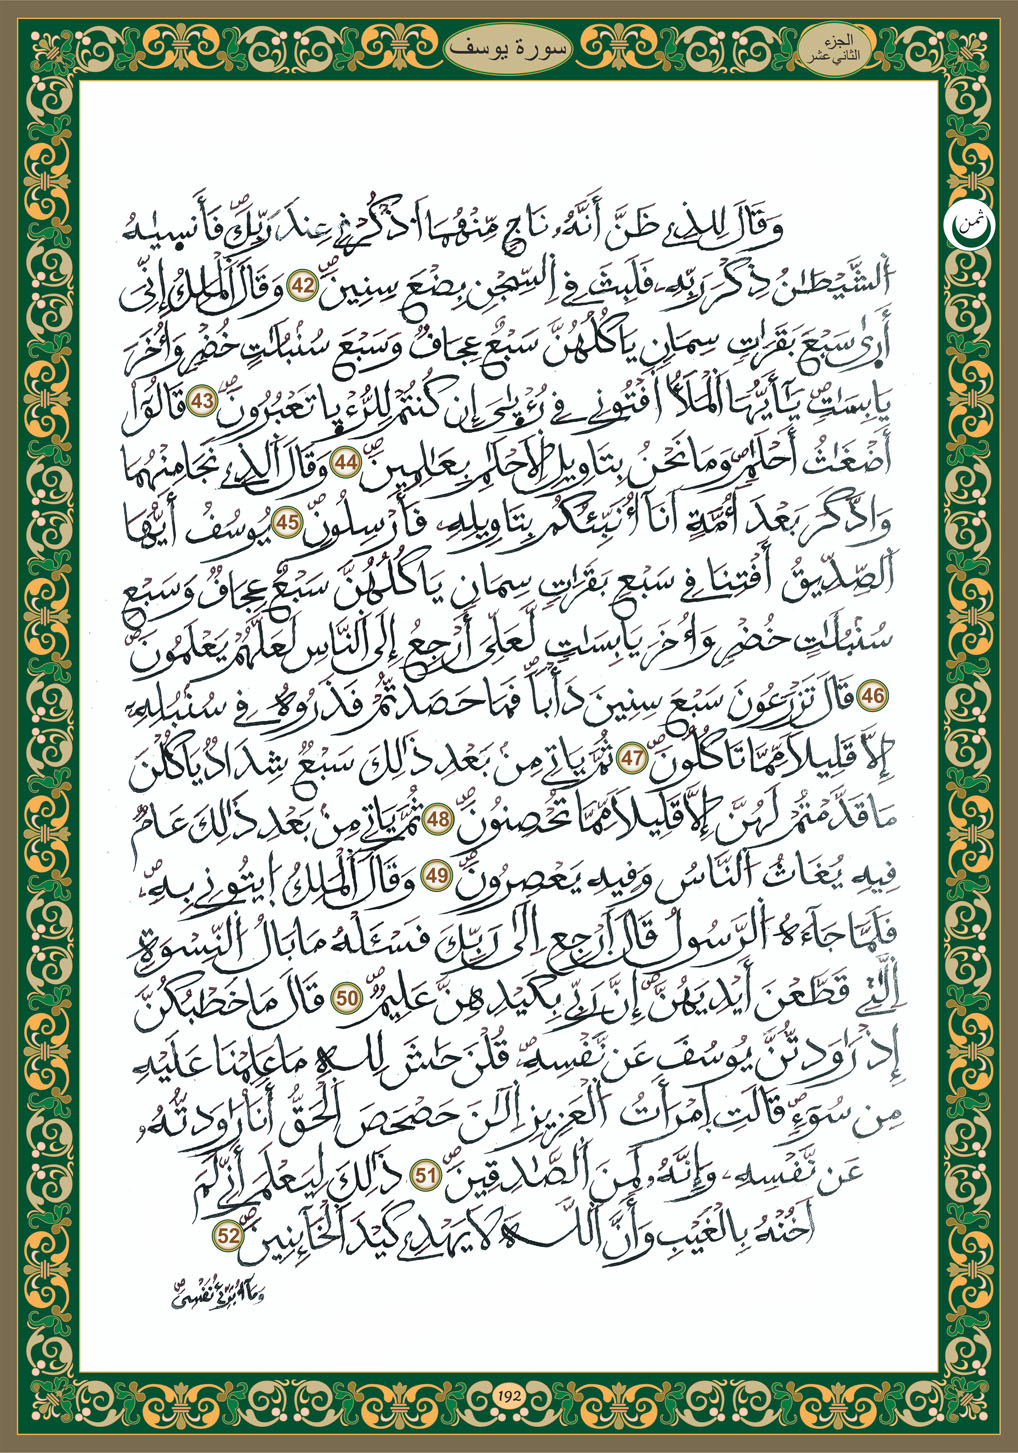 الجزء
الثاني عشر
سورة يوسف
ثمن
وَقَالَ لِلذِے ظَنَّ أَنَّهُۥ نَاجٖ مِّنْهُمَا اَذْكُرْنِے عِندَ رَبِّكَۖ فَأَنس۪يٰهُ
اُ۬لشَّيْطَٰنُ ذِكْرَ رَبِّهِۦ فَلَبِثَ فِے اِ۬لسِّجْنِ بِضْعَ سِنِينَۖ 42 وَقَالَ اَ۬لْمَلِكُ إِنِّيَ
أَر۪يٰ سَبْعَ بَقَرَٰتٖ سِمَانٖ يَاكُلُهُنَّ سَبْعٌ عِجَافٞ وَسَبْعَ سُنۢبُلَٰتٍ خُضْرٖ وَأُخَرَ
يَابِسَٰتٖۖ يَٰٓأَيُّهَا اَ۬لْمَلَأُ اَفْتُونِے فِے رُءْيٰ۪يَ إِن كُنتُمْ لِلرُّءْي۪ا تَعْبُرُونَۖ 43 قَالُوٓاْ
أَضْغَٰثُ أَحْلَٰمٖۖ وَمَا نَحْنُ بِتَاوِيلِ اِ۬لَاحْلَٰمِ بِعَٰلِمِينَۖ 44 وَقَالَ اَ۬لذِے نَجَا مِنْهُمَا
وَادَّكَرَ بَعْدَ أُمَّةٍ اَنَآ أُنَبِّئُكُم بِتَاوِيلِهِۦ فَأَرْسِلُونِۖ 45 يُوسُفُ أَيُّهَا
اَ۬لصِّدِّيقُ أَفْتِنَا فِے سَبْعِ بَقَرَٰتٖ سِمَانٖ يَاكُلُهُنَّ سَبْعٌ عِجَافٞ وَسَبْعِ
سُنۢبُلَٰتٍ خُضْرٖ وَأُخَرَ يَابِسَٰتٖ لَّعَلِّيَ أَرْجِعُ إِلَي اَ۬لنَّاسِ لَعَلَّهُمْ يَعْلَمُونَۖ
46 قَالَ تَزْرَعُونَ سَبْعَ سِنِينَ دَأْباٗۖ فَمَا حَصَدتُّمْ فَذَرُوهُ فِے سُنۢبُلِهِۦٓ
إِلَّا قَلِيلاٗ مِّمَّا تَاكُلُونَۖ 47 ثُمَّ يَاتِے مِنۢ بَعْدِ ذَٰلِكَ سَبْعٞ شِدَادٞ يَاكُلْنَ
مَا قَدَّمْتُمْ لَهُنَّ إِلَّا قَلِيلاٗ مِّمَّا تُحْصِنُونَۖ 48 ثُمَّ يَاتِے مِنۢ بَعْدِ ذَٰلِكَ عَامٞ
فِيهِ يُغَاثُ اُ۬لنَّاسُ وَفِيهِ يَعْصِرُونَۖ 49 وَقَالَ اَ۬لْمَلِكُ اُ۪يتُونِے بِهِۦۖ
فَلَمَّا جَآءَهُ اُ۬لرَّسُولُ قَالَ اَ۪رْجِعِ اِلَيٰ رَبِّكَ فَسْـَٔلْهُ مَا بَالُ اُ۬لنِّسْوَةِ
اِ۬لتِے قَطَّعْنَ أَيْدِيَهُنَّۖ إِنَّ رَبِّے بِكَيْدِهِنَّ عَلِيمٞۖ 50 قَالَ مَا خَطْبُكُنَّ
إِذْ رَٰوَدتُّنَّ يُوسُفَ عَن نَّفْسِهِۦۖ قُلْنَ حَٰشَ لِلهِ مَا عَلِمْنَا عَلَيْهِ
مِن سُوٓءٖۖ قَالَتِ اِ۪مْرَأَتُ اُ۬لْعَزِيزِ اِ۬لَٰنَ حَصْحَصَ اَ۬لْحَقُّ أَنَا رَٰوَدتُّهُۥ
عَن نَّفْسِهِۦ وَإِنَّهُۥ لَمِنَ اَ۬لصَّٰدِقِينَۖ 51 ذَٰلِكَ لِيَعْلَمَ أَنِّے لَمَ
اَخُنْهُ بِالْغَيْبِ وَأَنَّ اَ۬للَّهَ لَا يَهْدِے كَيْدَ اَ۬لْخَآئِنِينَۖ 52
وَمَآ أُبَرِّئُ نَفْسِيَۖ
192